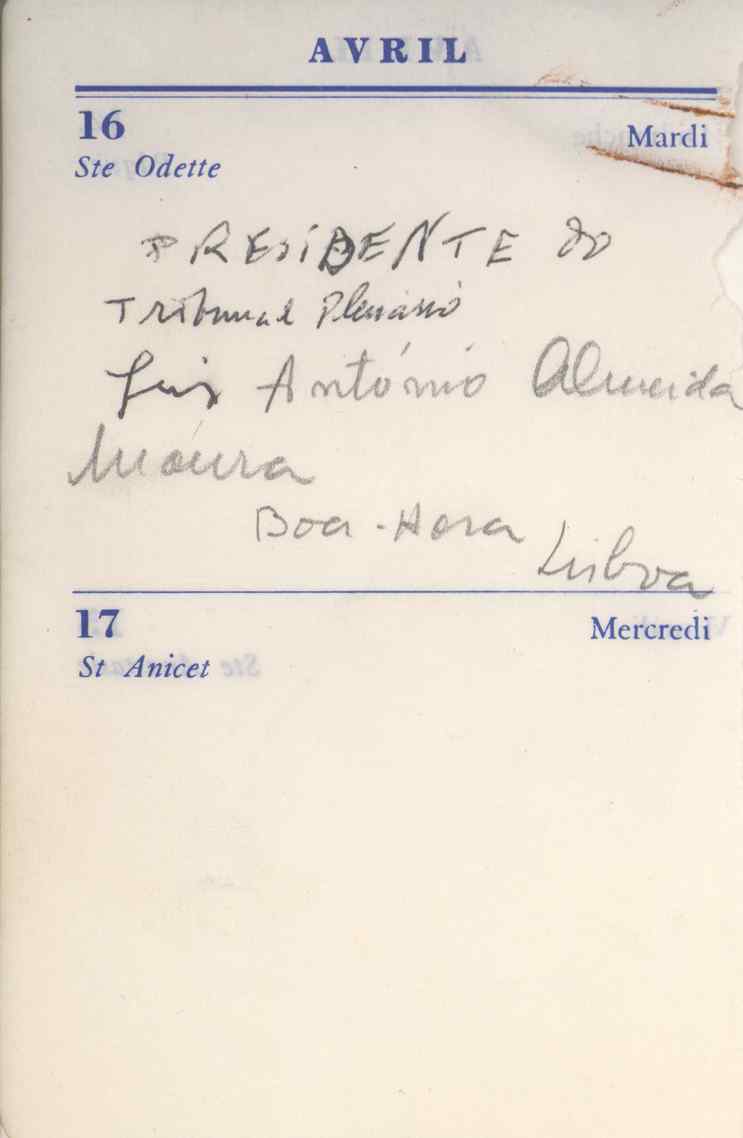 AVRIL
16 Mardi
Ste Odette
PRESIDENTE do
Tribunal Plenário
Luis António Almeida
Moura
Boa-Hora
Lisboa
17 Mercredi
St Anicet